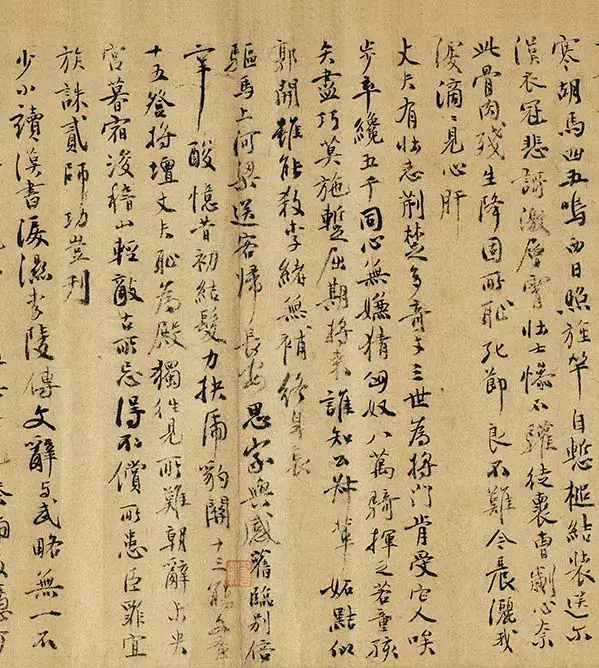 寒胡馬四五鳴西日照旌竿自慙椎結裝送尔
漢衣冠悲謌激層霄壮士慘不驩徒裹曹劌心奈
此骨肉殘生降固所恥死節良不難今晨灑我
淚滴〻見心肝
丈夫有壮志荆楚多奇才三世為將門肯受它人唉
步卒纔五千同心無嫌猜匈奴八萬騎揮之若童孩
矢盡巧莫施蹔屈期將来誰知公孫輩妬點似
郭開雖能殺李緒無補終身哀
驅馬上河梁送客歸長安思家與感舊臨別倍
辛酸憶昔初結髮力抉虎豹關十三能文章
十五登將壇丈夫恥為殿獨往見所難朝辭未央
宮暮宿浚稽山輕敵古所忌得不償所患臣罪宜
族誅貳師功豈刊
少小讀漢書淚濕李陵傳文辭与武略無一不